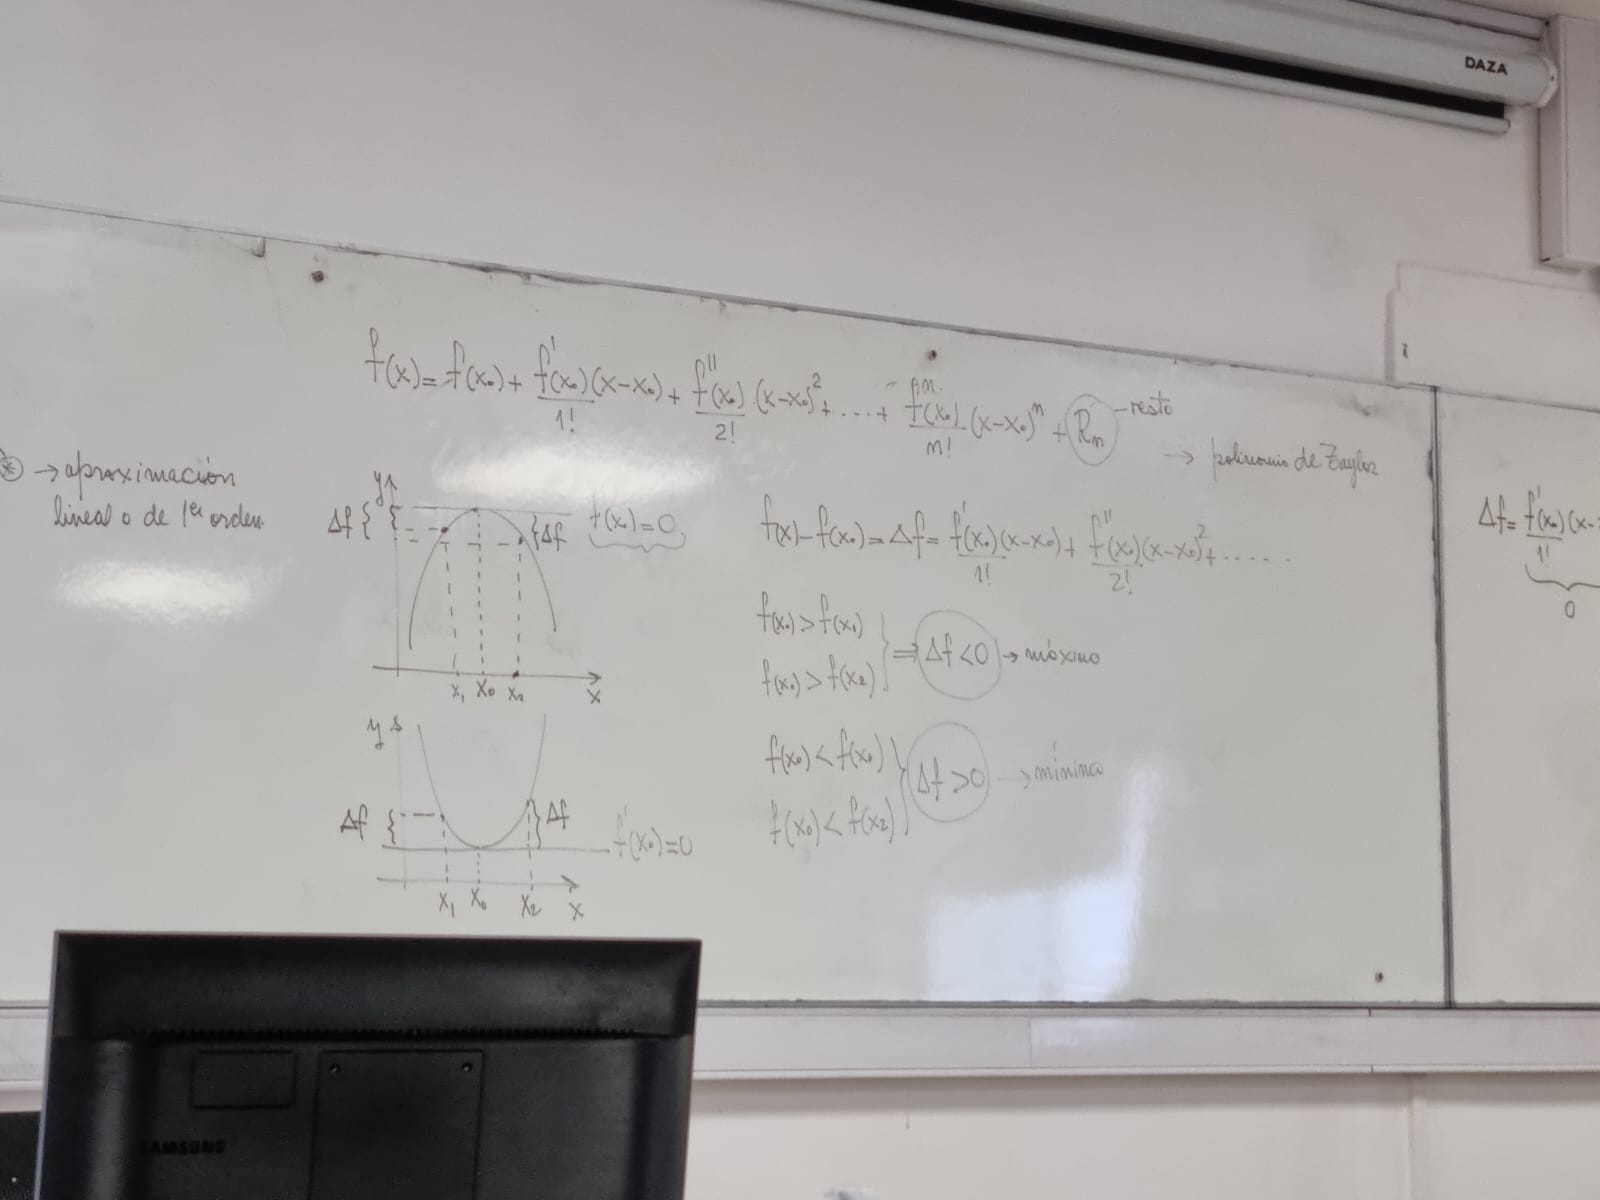 DAZA
f(x) = f(x₀) + f'(x₀)/1! (x-x₀) + f''(x₀)/2! · (x-x₀)² + ..... + fⁿ(x₀)/n! · (x-x₀)ⁿ + Rₙ - resto
→ polinomio de Taylor
* → aproximación
lineal o de 1er orden.
y
Δf { { } Δf f(x₀) = 0
x₁ x₀ x₂ x
f(x) - f(x₀) = Δf = f'(x₀)/1! (x-x₀) + f''(x₀)/2! (x-x₀)² + ......
f(x₀) > f(x₁)
f(x₀) > f(x₂) } ⇒ Δf < 0 → máximo
y
Δf { } Δf f'(x₀) = 0
x₁ x₀ x₂ x
f(x₀) < f(x₀)
f(x₀) < f(x₂) } Δf > 0 → mínimo
Δf = f'(x₀)/1! (x-
0
SAMSUNG